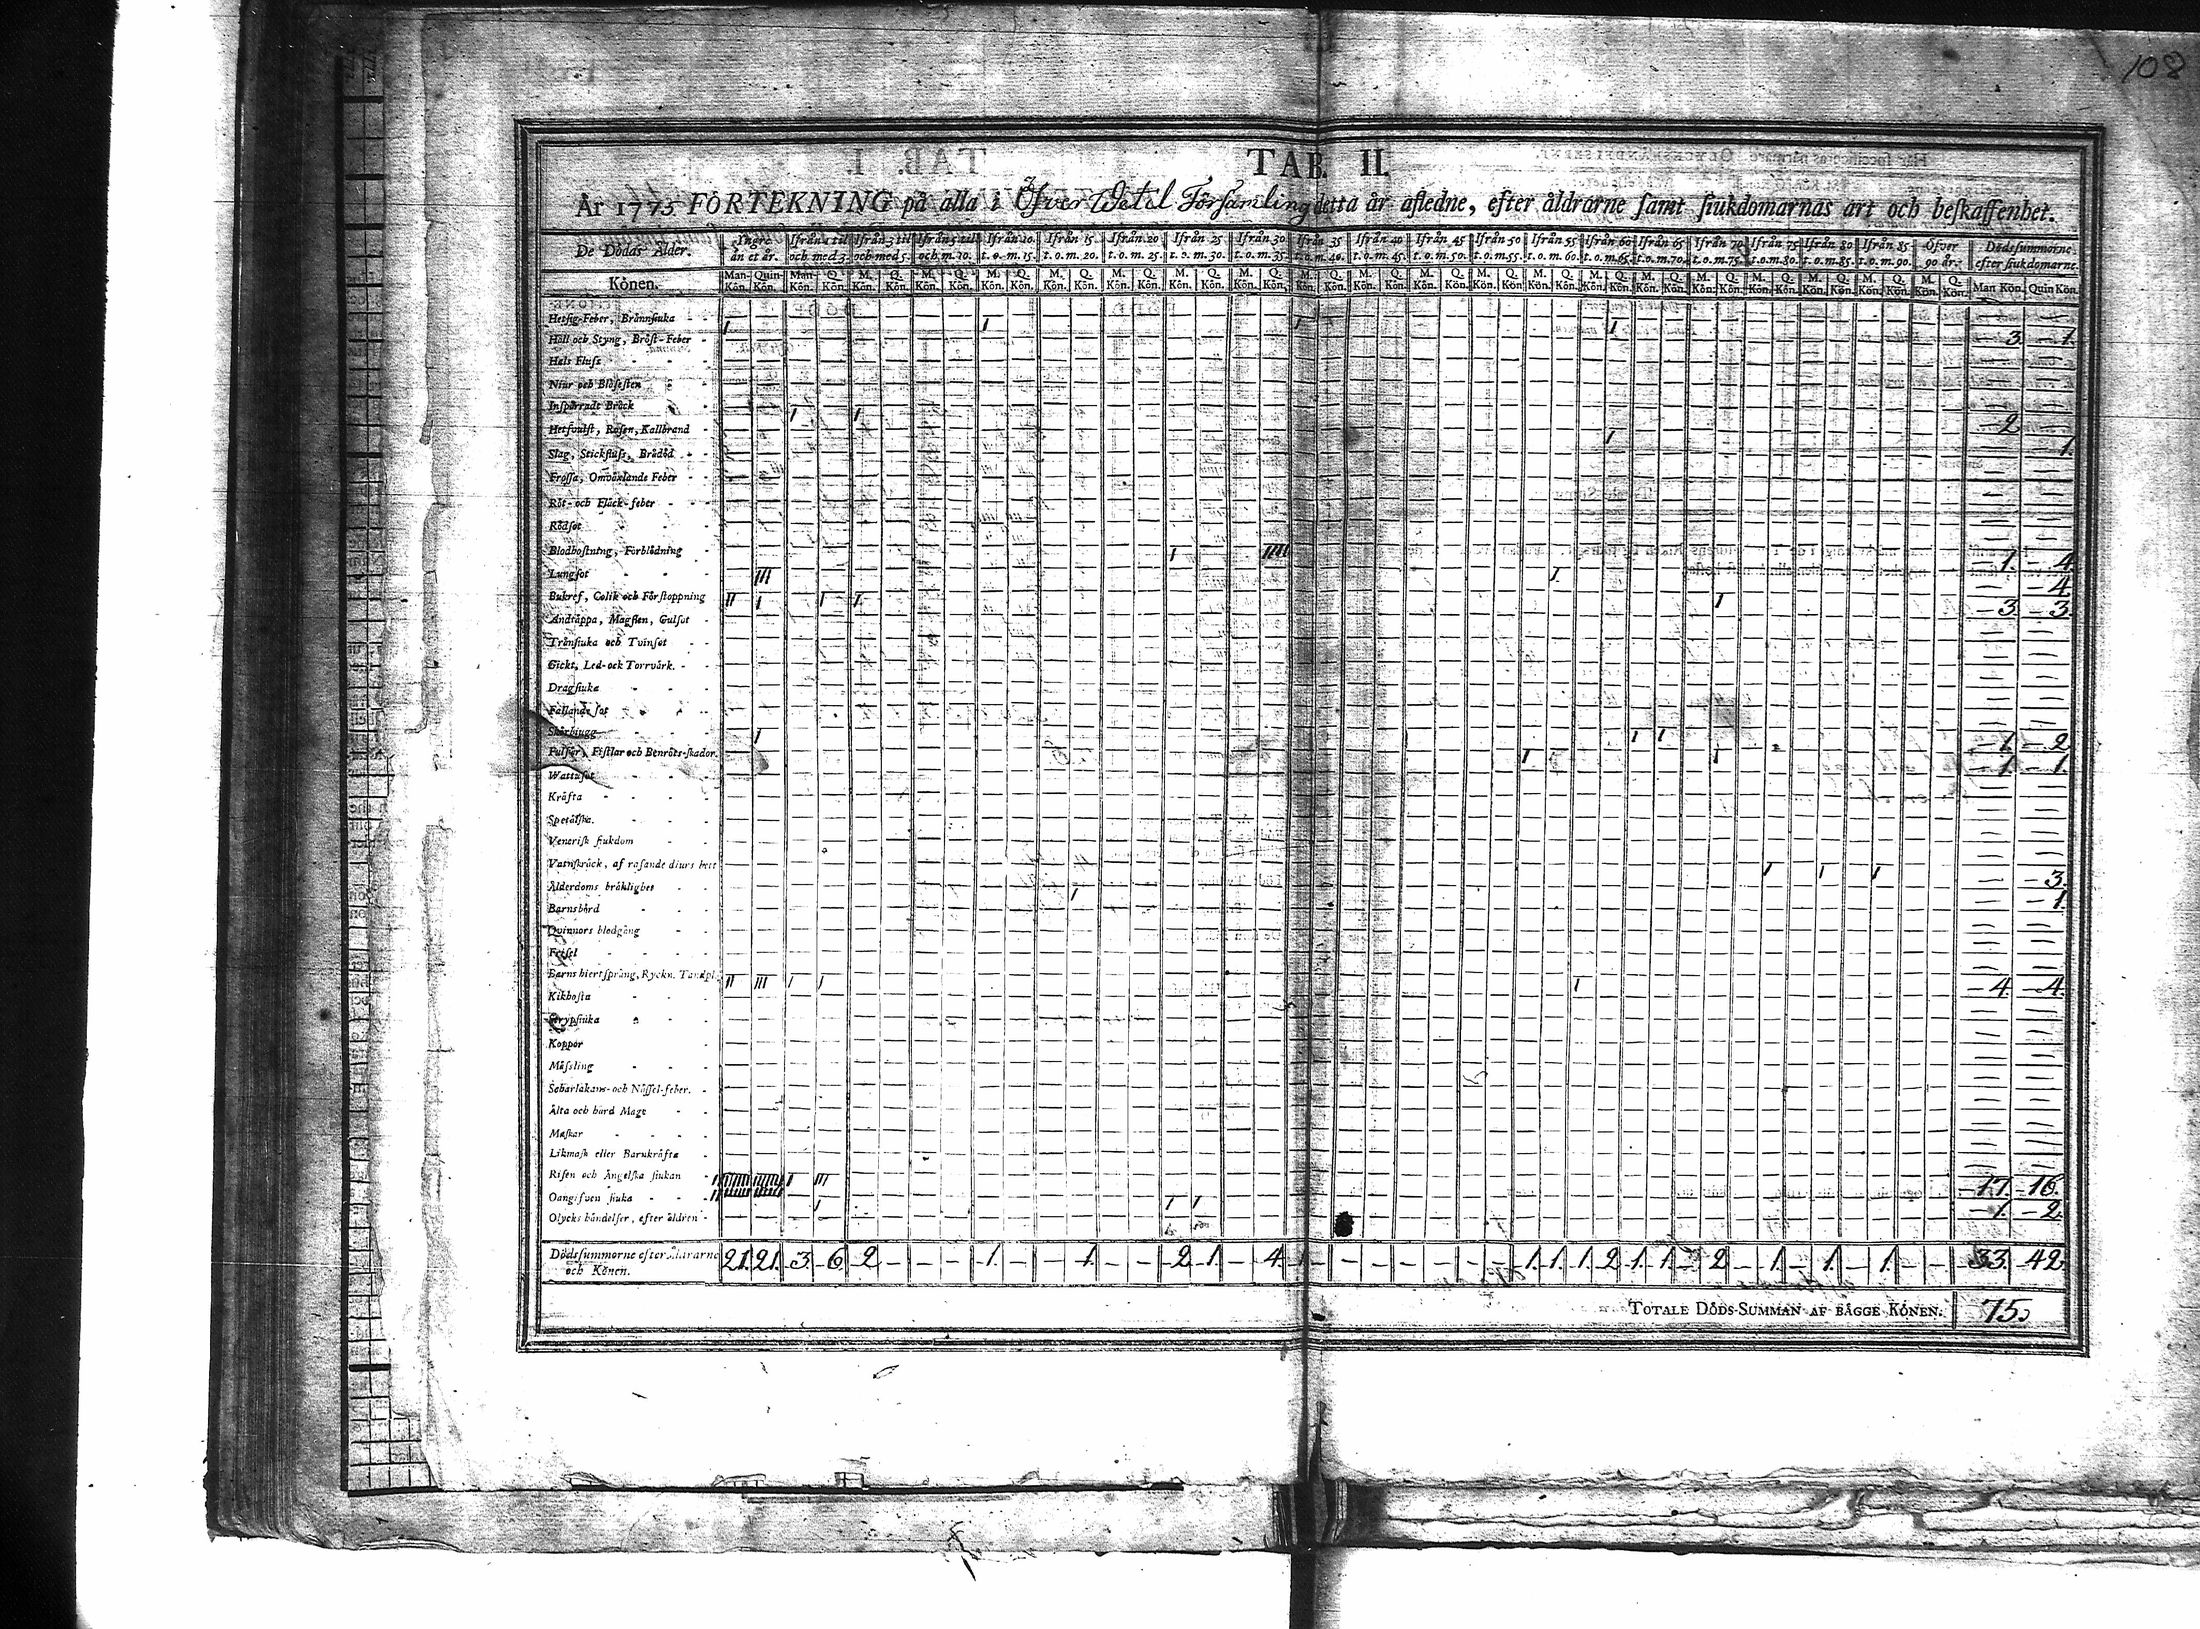 108
TAB. II.
År 1775 FÖRTEKNING på alla i Öfver Wetil Församling detta år afledne, efter åldrarne samt siukdomarnas art och beskaffenhet.
De Dödas Ålder. Yngre än et år. Ifrån 1 til och med 3. Ifrån 3 til och med 5. Ifrån 5 til och m. 10. Ifrån 10 t. o. m. 15. Ifrån 15 t. o. m. 20. Ifrån 20 t. o. m. 25. Ifrån 25 t. o. m. 30. Ifrån 30 t. o. m. 35. Ifrån 35 t. o. m. 40. Ifrån 40 t. o. m. 45. Ifrån 45 t. o. m. 50. Ifrån 50 t. o. m. 55. Ifrån 55 t. o. m. 60. Ifrån 60 t. o. m. 65. Ifrån 65 t. o. m. 70. Ifrån 70 t. o. m. 75. Ifrån 75 t. o. m. 80. Ifrån 80 t. o. m. 85. Ifrån 85 t. o. m. 90. Öfver 90 år. Dödssummorne efter siukdomarne.
Könen. Man-Kön. Quin-Kön. Man-Kön. Q. Kön. M. Kön. Q. Kön. M. Kön. Q. Kön. M. Kön. Q. Kön. M. Kön. Q. Kön. M. Kön. Q. Kön. M. Kön. Q. Kön. M. Kön. Q. Kön. M. Kön. Q. Kön. M. Kön. Q. Kön. M. Kön. Q. Kön. M. Kön. Q. Kön. M. Kön. Q. Kön. M. Kön. Q. Kön. M. Kön. Q. Kön. M. Kön. Q. Kön. M. Kön. Q. Kön. M. Kön. Q. Kön. M. Kön. Q. Kön. M. Kön. Q. Kön. Man Kön. Quin Kön.
Hetsig-Feber, Brännsiuka
Håll och Styng, Bröst-Feber I I I I 3. 1.
Hals Fluss
Niur och Blåsesten
Inspärradt Bråck
Hetsvulst, Rosen, Kallbrand I I 2
Slag, Stickfluss, Brådöd I 1.
Frossa, Omväxlande Feber
Röt- och Fläck-feber
Rödsot
Blodhostning, Förblödning
Lungsot I IIII 1. 4.
Bukref, Colik och Förstoppning III I 4.
Andtäppa, Magsten, Gulsot II I I I I 3. 3.
Tränsiuka och Tvinsot
Gickt, Led- ock Torrvärk.
Dragsiuka
Fallande sot
Skörbiugg
Fulslör, Fistlar och Benröts-skador. I I I 1. 2.
Wattusot I I 1. 1.
Kräfta
Spetälska.
Venerisk siukdom
Vatnskräck, af rasande diurs bett
Ålderdoms bräklighet I I I 3.
Barnsbörd I 1.
Qvinnors blodgång
Frisel
Barns hiertsprång, Ryckn. Tandpl.
Kikhosta II III I I I 4. 4.
Strypsiuka
Koppor
Mässling
Scharlakans- och Nässel-feber.
Älta och hård Mage
Maskar
Likmask eller Barnkräfta
Risen och Ängelska siukan
Oangifven siuka I III 17. 16.
Olycks händelser, efter åldren I I I 1. 2.
Dödssummorne efter åldrarne och Könen. 21. 21. 3. 6. 2 1. 1. 2. 1. 4. 1 1. 1. 1. 2 1. 1. 2 1. 1. 1. 33. 42.
TOTALE DÖDS-SUMMAN AF BÅGGE KÖNEN. 75.